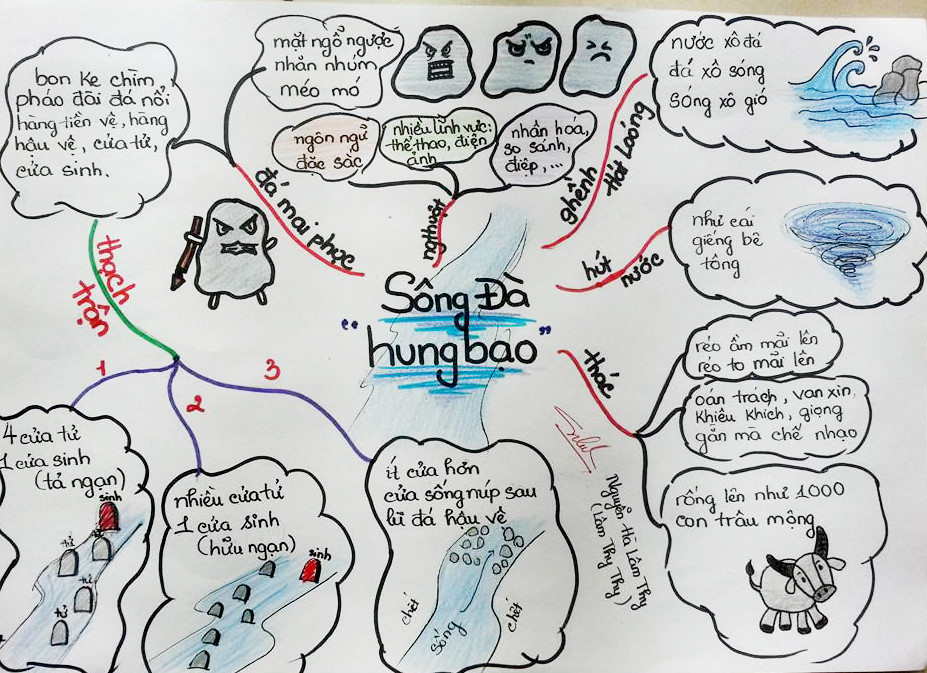 Sông Đà
"hung bạo"
đá mai phục
mặt ngổ ngược
nhăn nhúm
méo mó
bon ke chìm,
pháo đài đá nổi
hàng tiền vệ, hàng
hậu vệ, cửa tử,
cửa sinh.
ng thuật
ngôn ngữ
đặc sắc
nhiều lĩnh vực:
thể thao, điện
ảnh
nhân hóa,
so sánh,
điệp, ...
ghềnh
Hát Loóng
nước xô đá
đá xô sóng
sóng xô gió
hút
nước
như cái
giếng bê
tông
thác
réo ầm mãi lên
réo to mãi lên
oán trách, van xin,
khiêu khích, giọng
gằn mà chế nhạo
rống lên như 1000
con trâu mộng
Nguyễn Hà Lâm Thy
(Lâm Thy Thy)
thạch
trận
1
4 cửa tử
1 cửa sinh
(tả ngạn)
sinh
tử
tử
tử
tử
2
nhiều cửa tử
1 cửa sinh
(hữu ngạn)
sinh
3
ít cửa hơn
cửa sống núp sau
lũ đá hậu vệ
chết
sống
chết